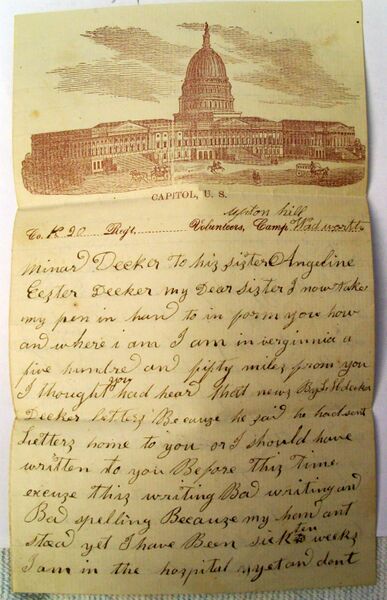 CAPITOL, U. S.
upton hill
Co. K 20 Reg't, Volunteers, Camp Wadworth
Minard Decker to his sister Angeline
Eezter Decker my Dear Sister I now take
my pen in hand to in form you how
and where i am I am in verginnia a
five hundred and fifty miles from you
I thought you had hear that news By
Decker letters Because he said he had sent
Letters home to you or I should have
written to you Before this Time
excuze this writing Bad writing and
Bad spelling Because my hand ant
stead yet I have Been sick ten weeks
I am in the hospital yet and dont